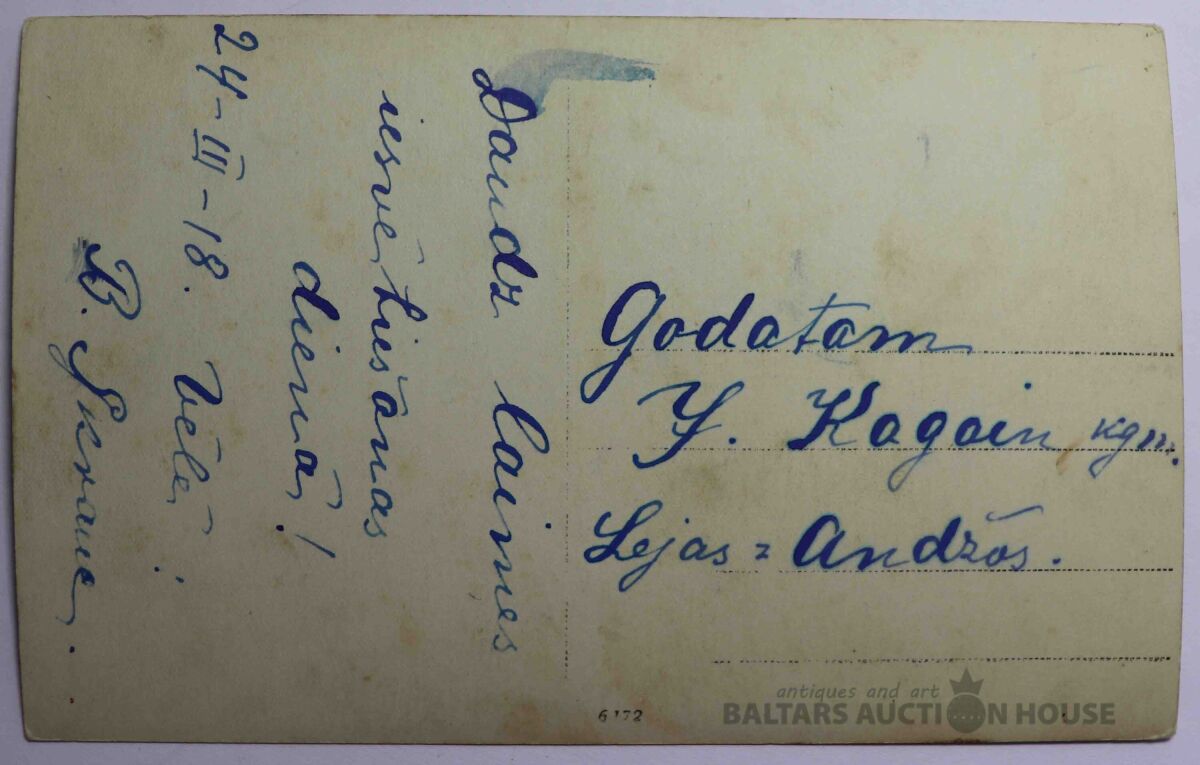 Daudz laimes
iesvētīšanas
dienā!
24-III-18. Vēlē
Godatam
J. Kagain kgm.
Lejas = Andžos.
6172
antiques and art
BALTARS AUCTION HOUSE